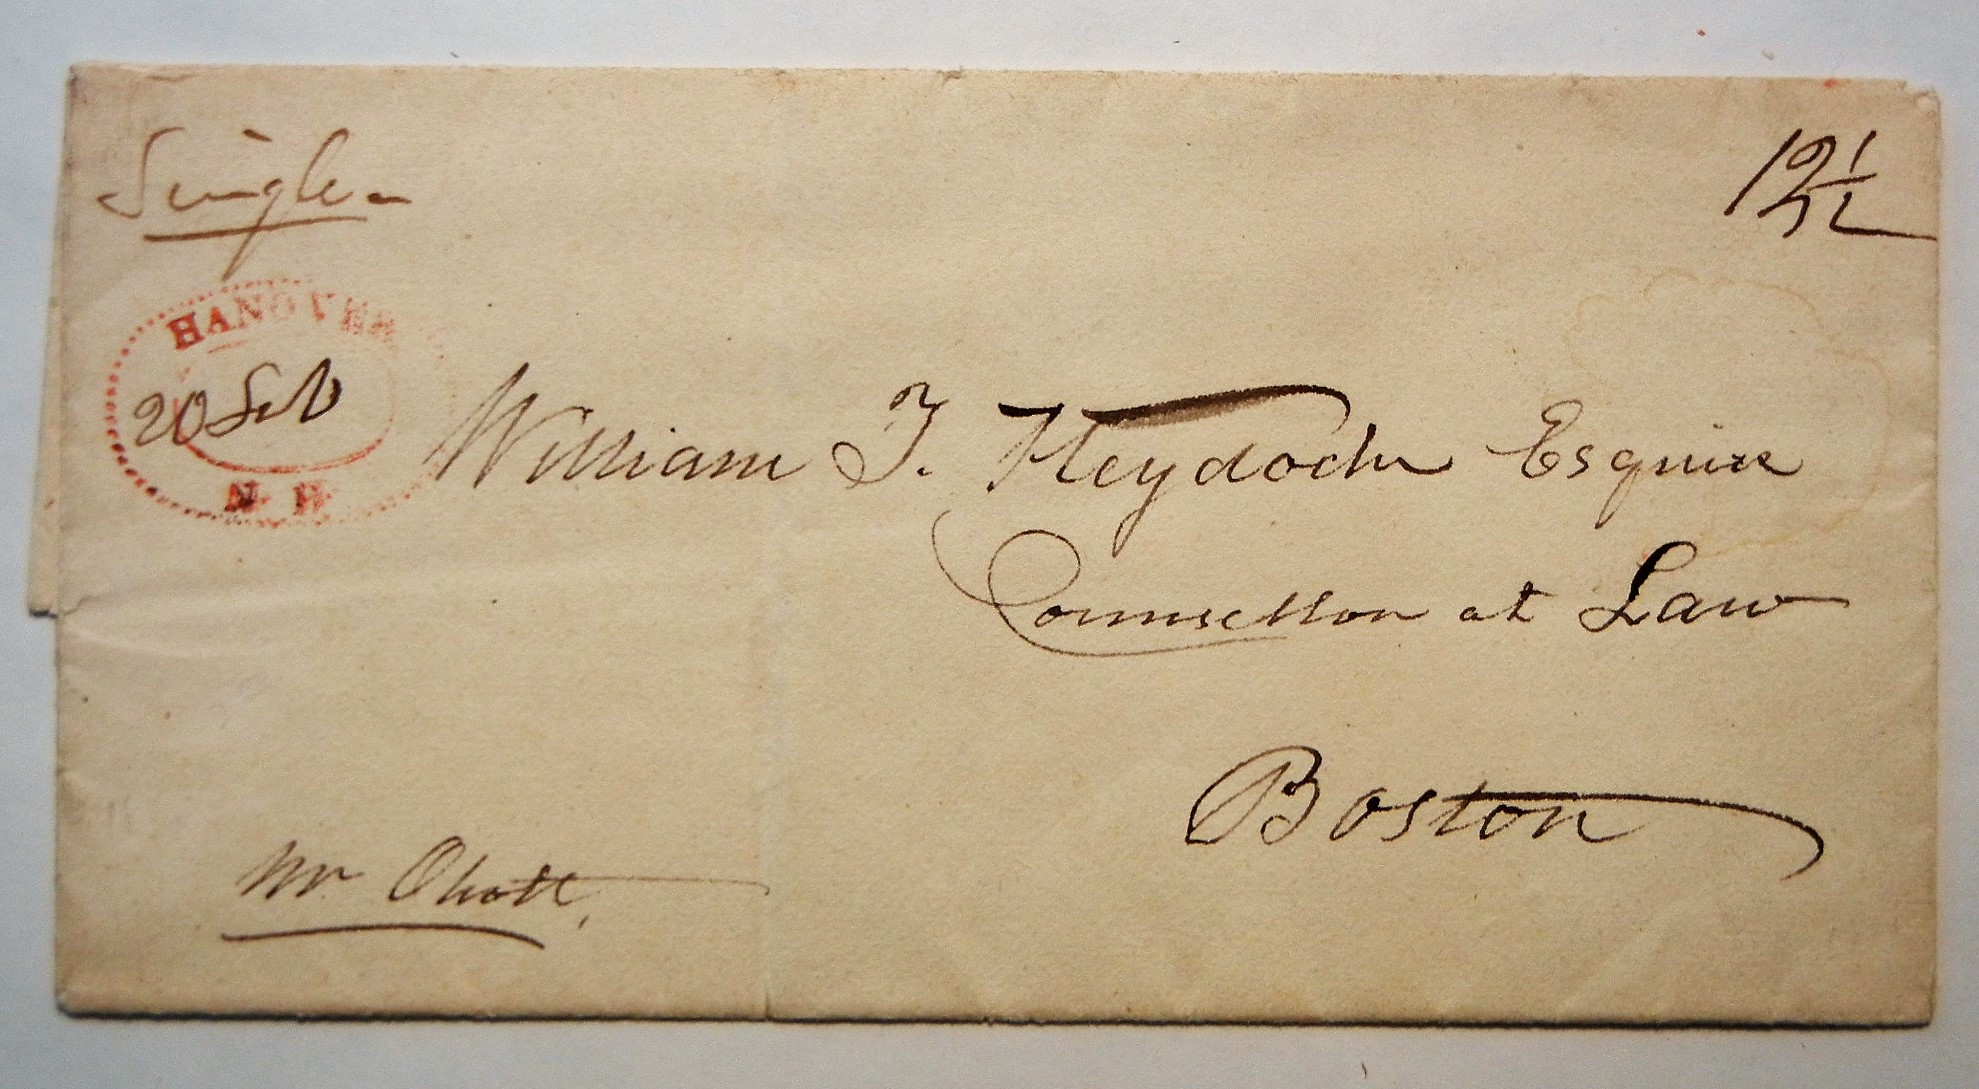 Single
12 1/2
HANOVER
20 Feb
N. H.
William T. Heydock Esquire
Counsellor at Law
Boston
Mr Olcott